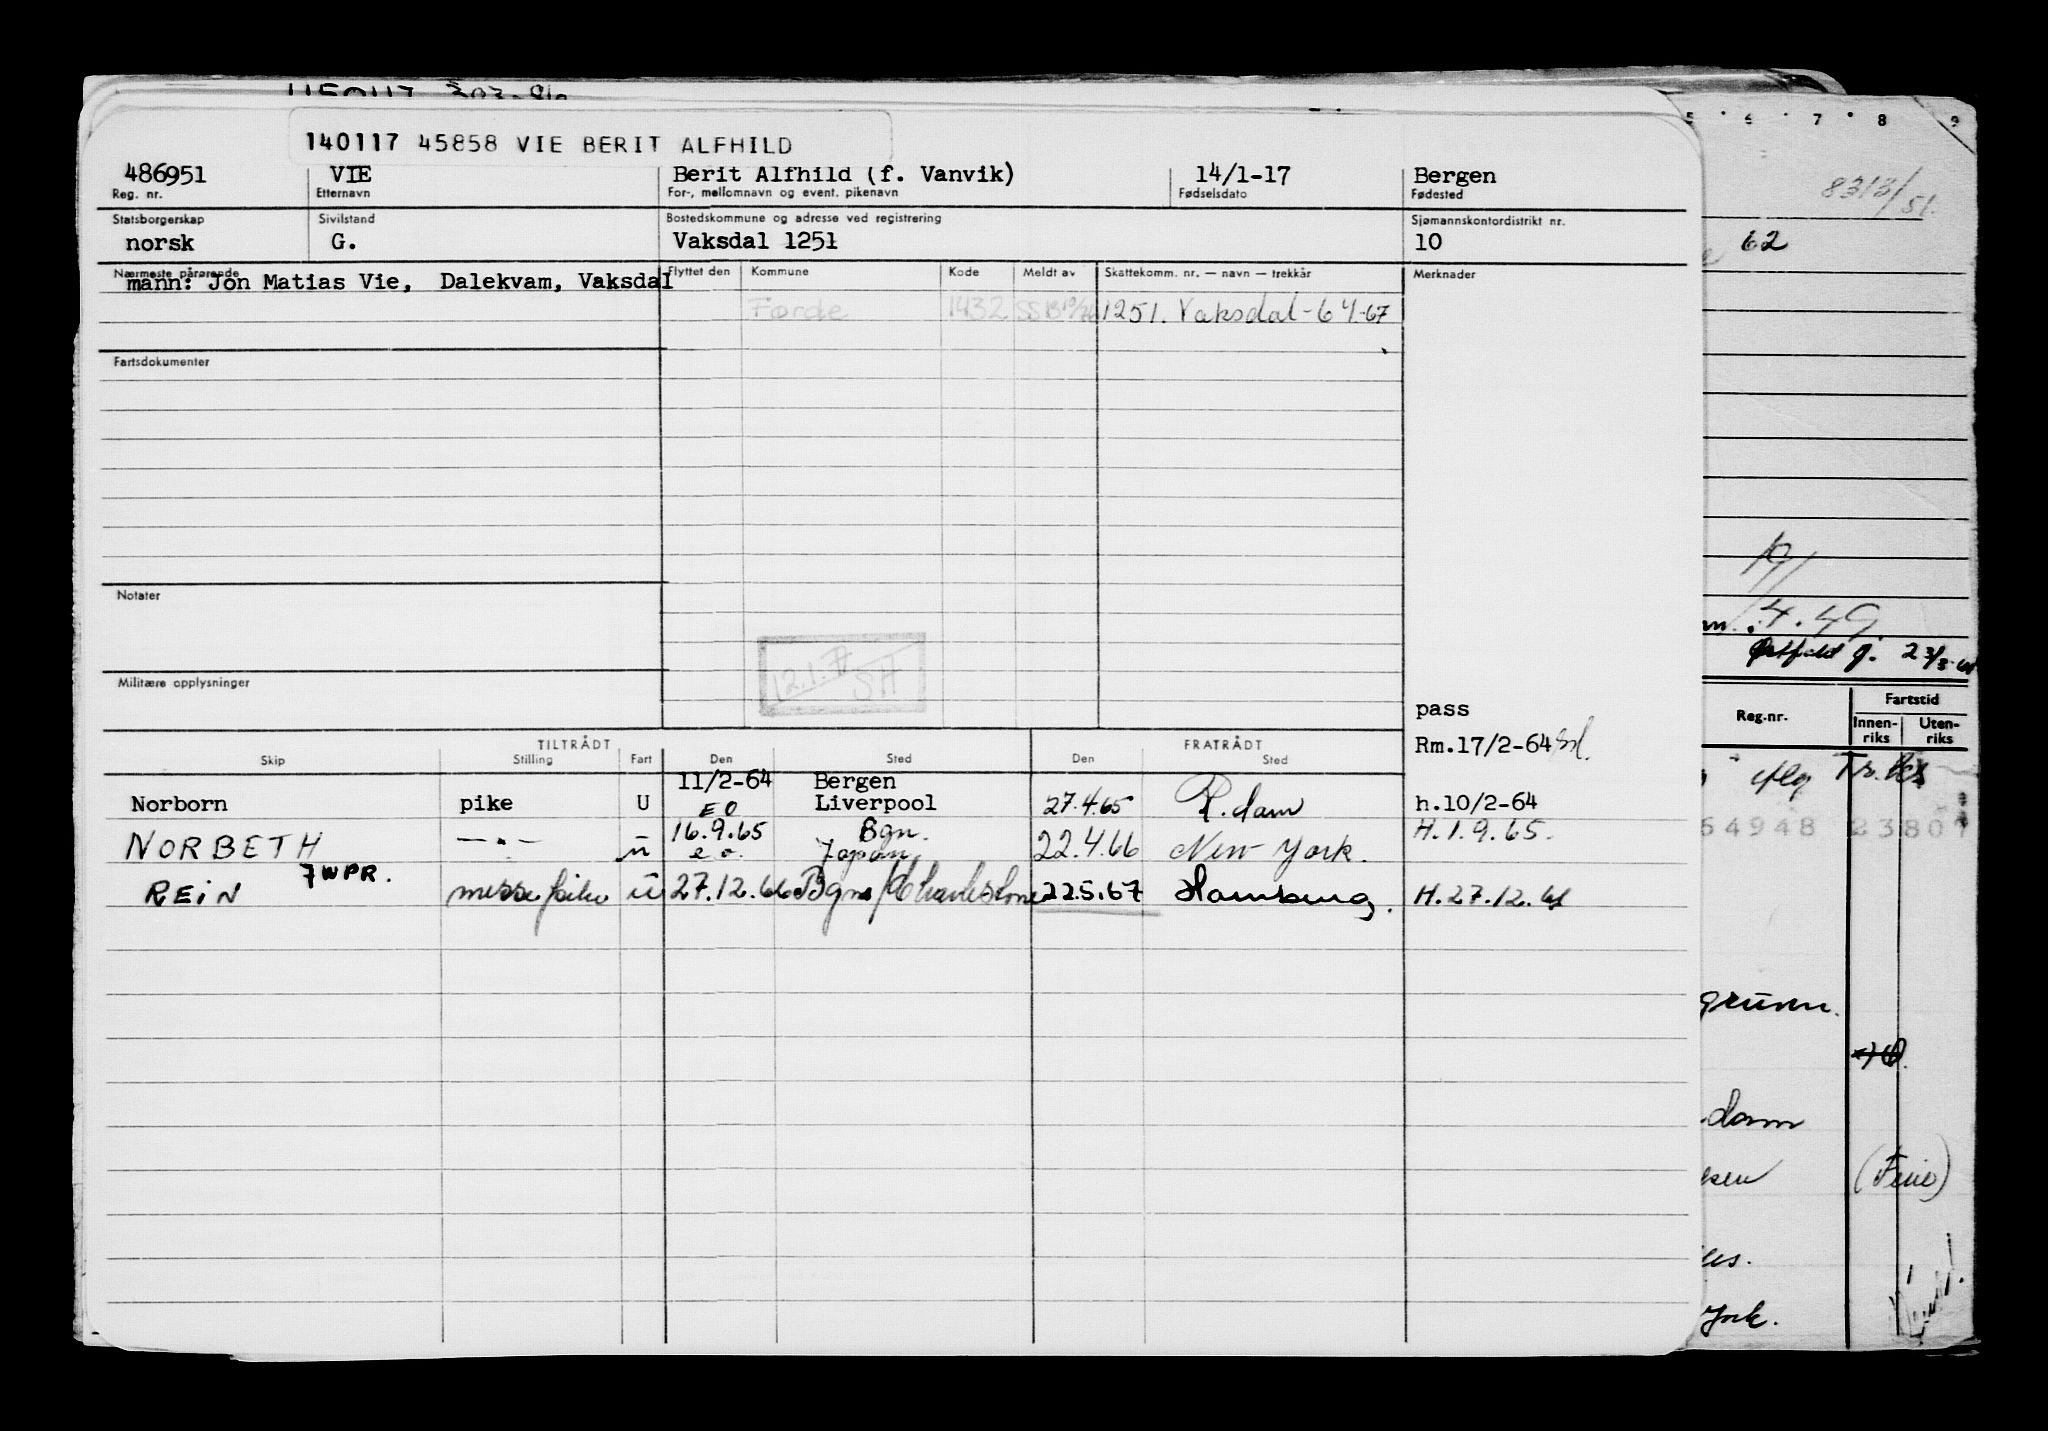 140117 45858 VIE BERIT ALFHILD
486951 VIE Berit Alfhild (f. Vanvik) 14/1-17 Bergen
Reg. nr. Etternavn For-, mellomnavn og event. pikenavn Fødselsdato Fødested
Statsborgerskap Sivilstand Bostedskommune og adresse ved registrering Sjømannskontordistrikt nr.
norsk G. Vaksdal 1251 10
Nærmeste pårørende Flyttet den Kommune Kode Meldt av Skattekomm. nr. — navn — trekkår Merknader
mann: Jon Matias Vie, Dalekvam, Vaksdal
Førde 1432 1251. Vaksdal - 64-67
Fartsdokumenter
Notater
Militære opplysninger
pass
Rm.17/2-64
TILTRÅDT FRATRÅDT
Skip Stilling Fart Den Sted Den Sted
11/2-64 Bergen
Norborn pike U EO Liverpool 27.4.65 R.dam h.10/2-64
16.9.65 Bgn. H.1.9.65.
NORBETH —„— u e.o. Japan 22.4.66 New York.
7WPR.
REIN messepike u 27.12.66 Bgn/Charlestone 22.5.67 Hamburg. H.27.12.66
5 6 7 8 9
8313/51.
62
19/
4.49
Østfold g. 23/3-61
Reg.nr. Fartstid
Innen-riks Uten-riks
54948 23801
grunn.
dam
(Ferie)
York.